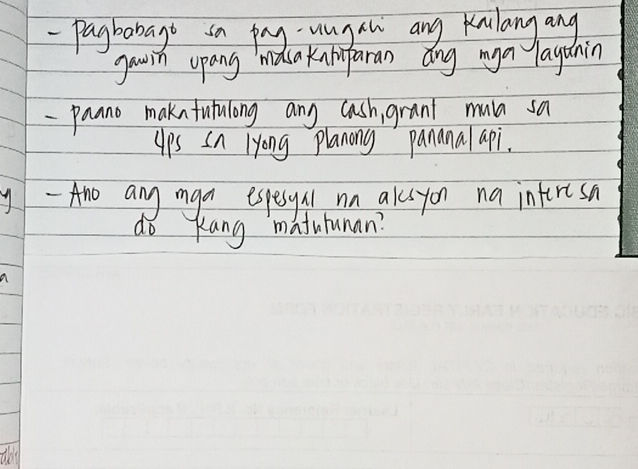 - Pagbabago sa pag-uugali ang kailangang
gawin upang masakatuparan ang mga layunin
- paano makatutulong ang cash,grant mula sa
4ps sa iyong planong pananalapi.
- Ano ang mga espesyal na aksyon na interesa
do kang matutunan?